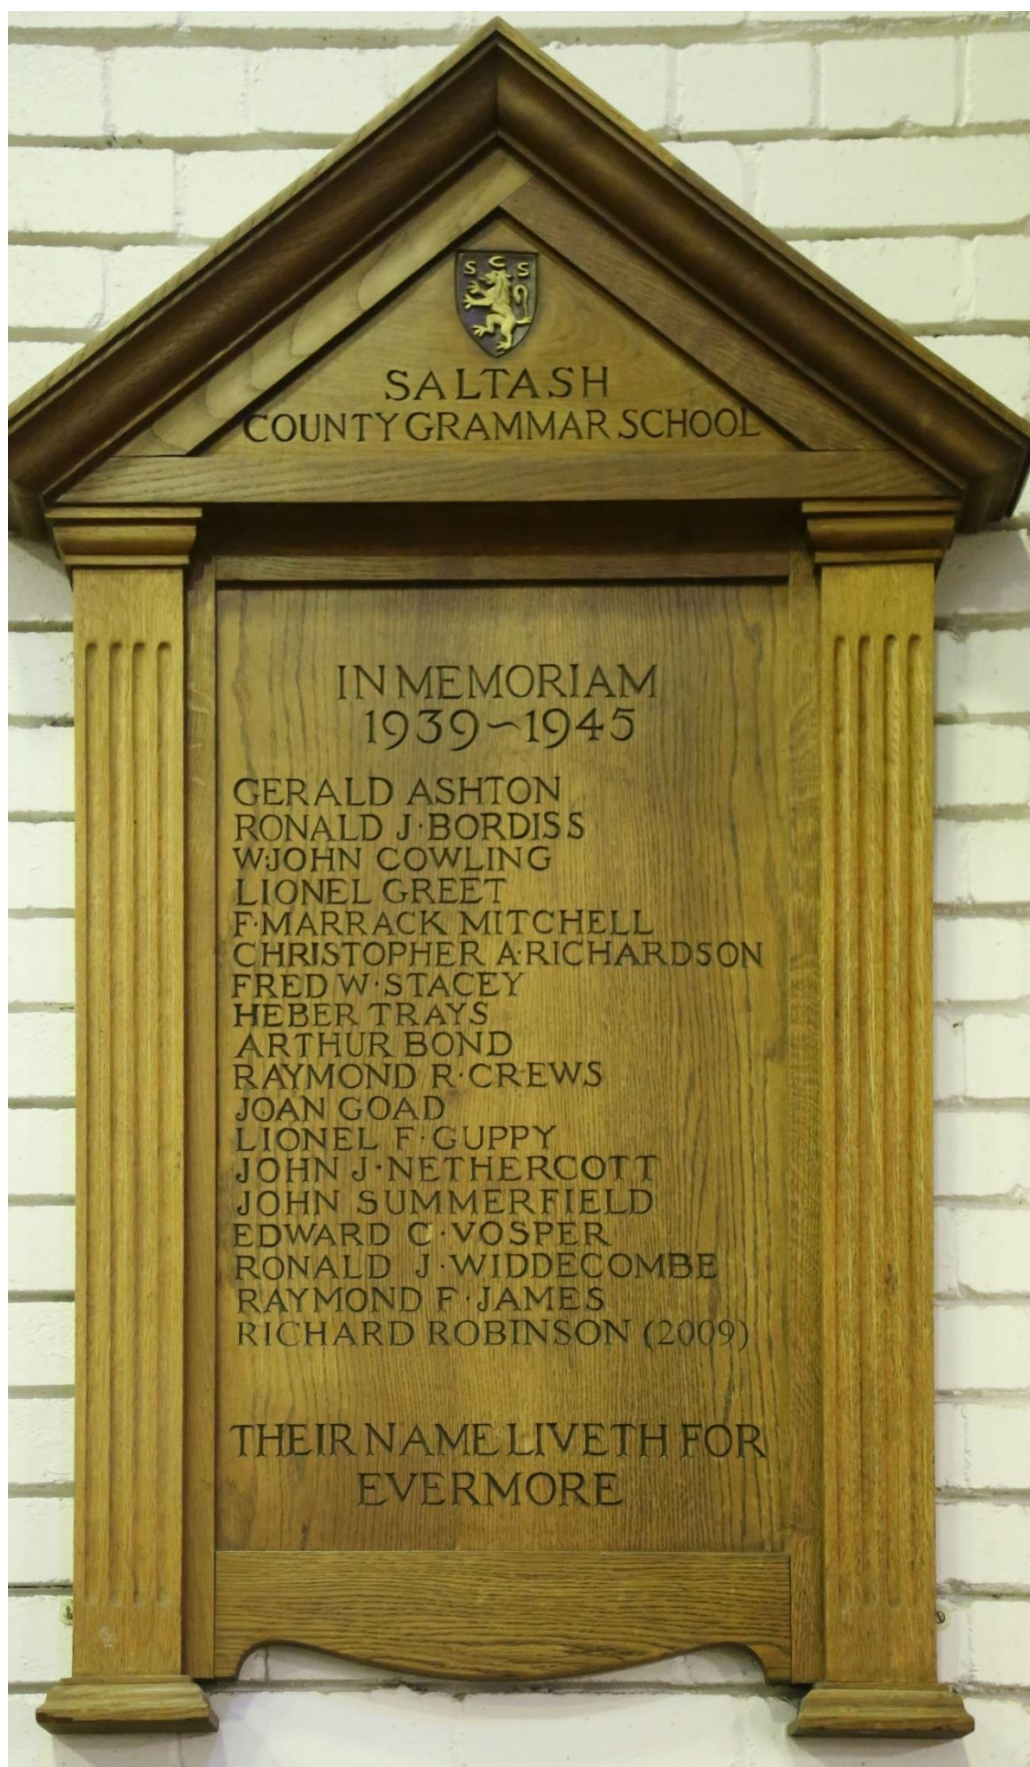 S C S
SALTASH
COUNTY GRAMMAR SCHOOL
IN MEMORIAM
1939~1945
GERALD ASHTON
RONALD J·BORDISS
W·JOHN COWLING
LIONEL GREET
F·MARRACK MITCHELL
CHRISTOPHER A·RICHARDSON
FRED W·STACEY
HEBER TRAYS
ARTHUR BOND
RAYMOND R·CREWS
JOAN GOAD
LIONEL F·GUPPY
JOHN J·NETHERCOTT
JOHN SUMMERFIELD
EDWARD C·VOSPER
RONALD J·WIDDECOMBE
RAYMOND F·JAMES
RICHARD ROBINSON (2009)
THEIR NAME LIVETH FOR
EVERMORE